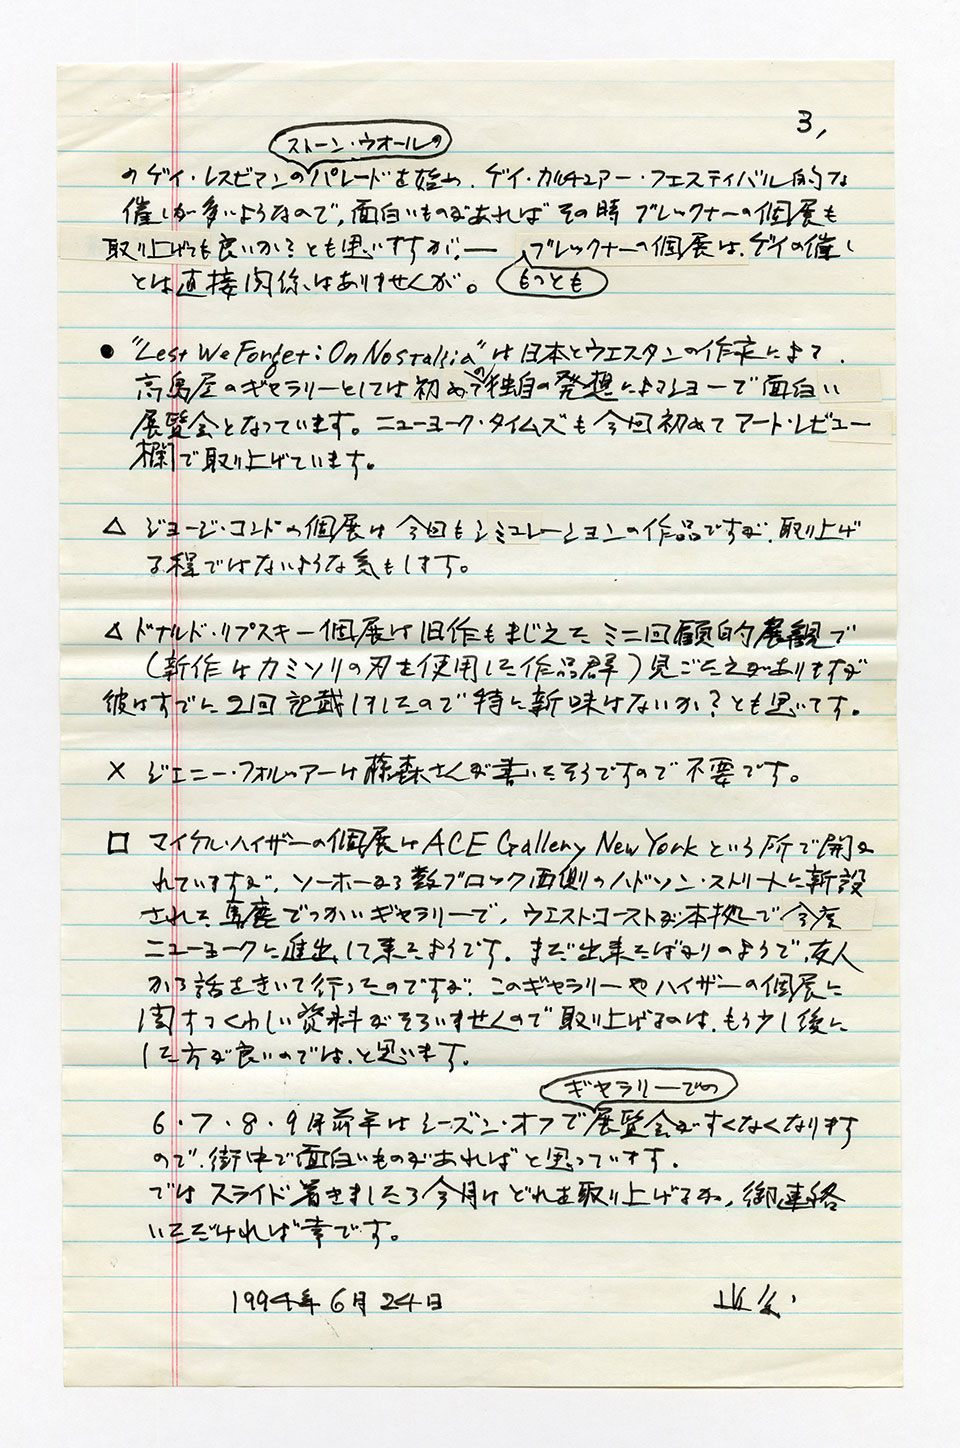 3,
ストーン・ウオールの
のゲイ・レスビアンのパレードを始め、ゲイ・カルチュアー・フェスティバル的な
催しが多いようなので、面白いものがあればその時ブレックナーの個展も
取り上げても良いか?とも思いますが、— ブレックナーの個展は、ゲイの催し
とは直接関係はありませんが。 もっとも
● "Lest We Forget: On Nostalgia"は日本とウエスタンの作家によって、
高島屋のギャラリーとしては初めての独自の発想によるショーで面白い
展覧会となっています。ニューヨーク・タイムズも今回初めてアート・レビュー
欄で取り上げています。
△ ジョージ・コンドの個展は今回もシミュレーションの作品ですが、取り上げ
る程ではないような気もします。
△ ドナルド・リプスキー個展は旧作もまじえたミニ回顧的展観で
(新作はカミソリの刃を使用した作品群)見ごたえがありますが
彼はすでに2回記載しましたので特に新味はないか?とも思いてす。
× ジェニー・フォルツアーは藤森さんが書いたそうですので不要です。
□ マイケル・ハイザーの個展はACE Gallery New Yorkという所で開か
れていますが、ソーホーから数ブロック西側のハドソン・ストリートに新設
された馬鹿でっかいギャラリーで、ウエストコーストが本拠で今度
ニューヨークに進出して来たようです。まだ出来たばかりのようで、友人
から話をきいて行ったのですが、このギャラリーやハイザーの個展に
関するくわしい資料がそろいませんので取り上げるのは、もう少し後に
した方が良いのでは、と思います。
ギャラリーでの
6・7・8・9月前半はシーズン・オフで展覧会がすくなくなります
ので、街中で面白いものがあればと思っています。
ではスライド着きましたら今月はどれを取り上げるか、御連絡
いただければ幸です。
1994年6月24日